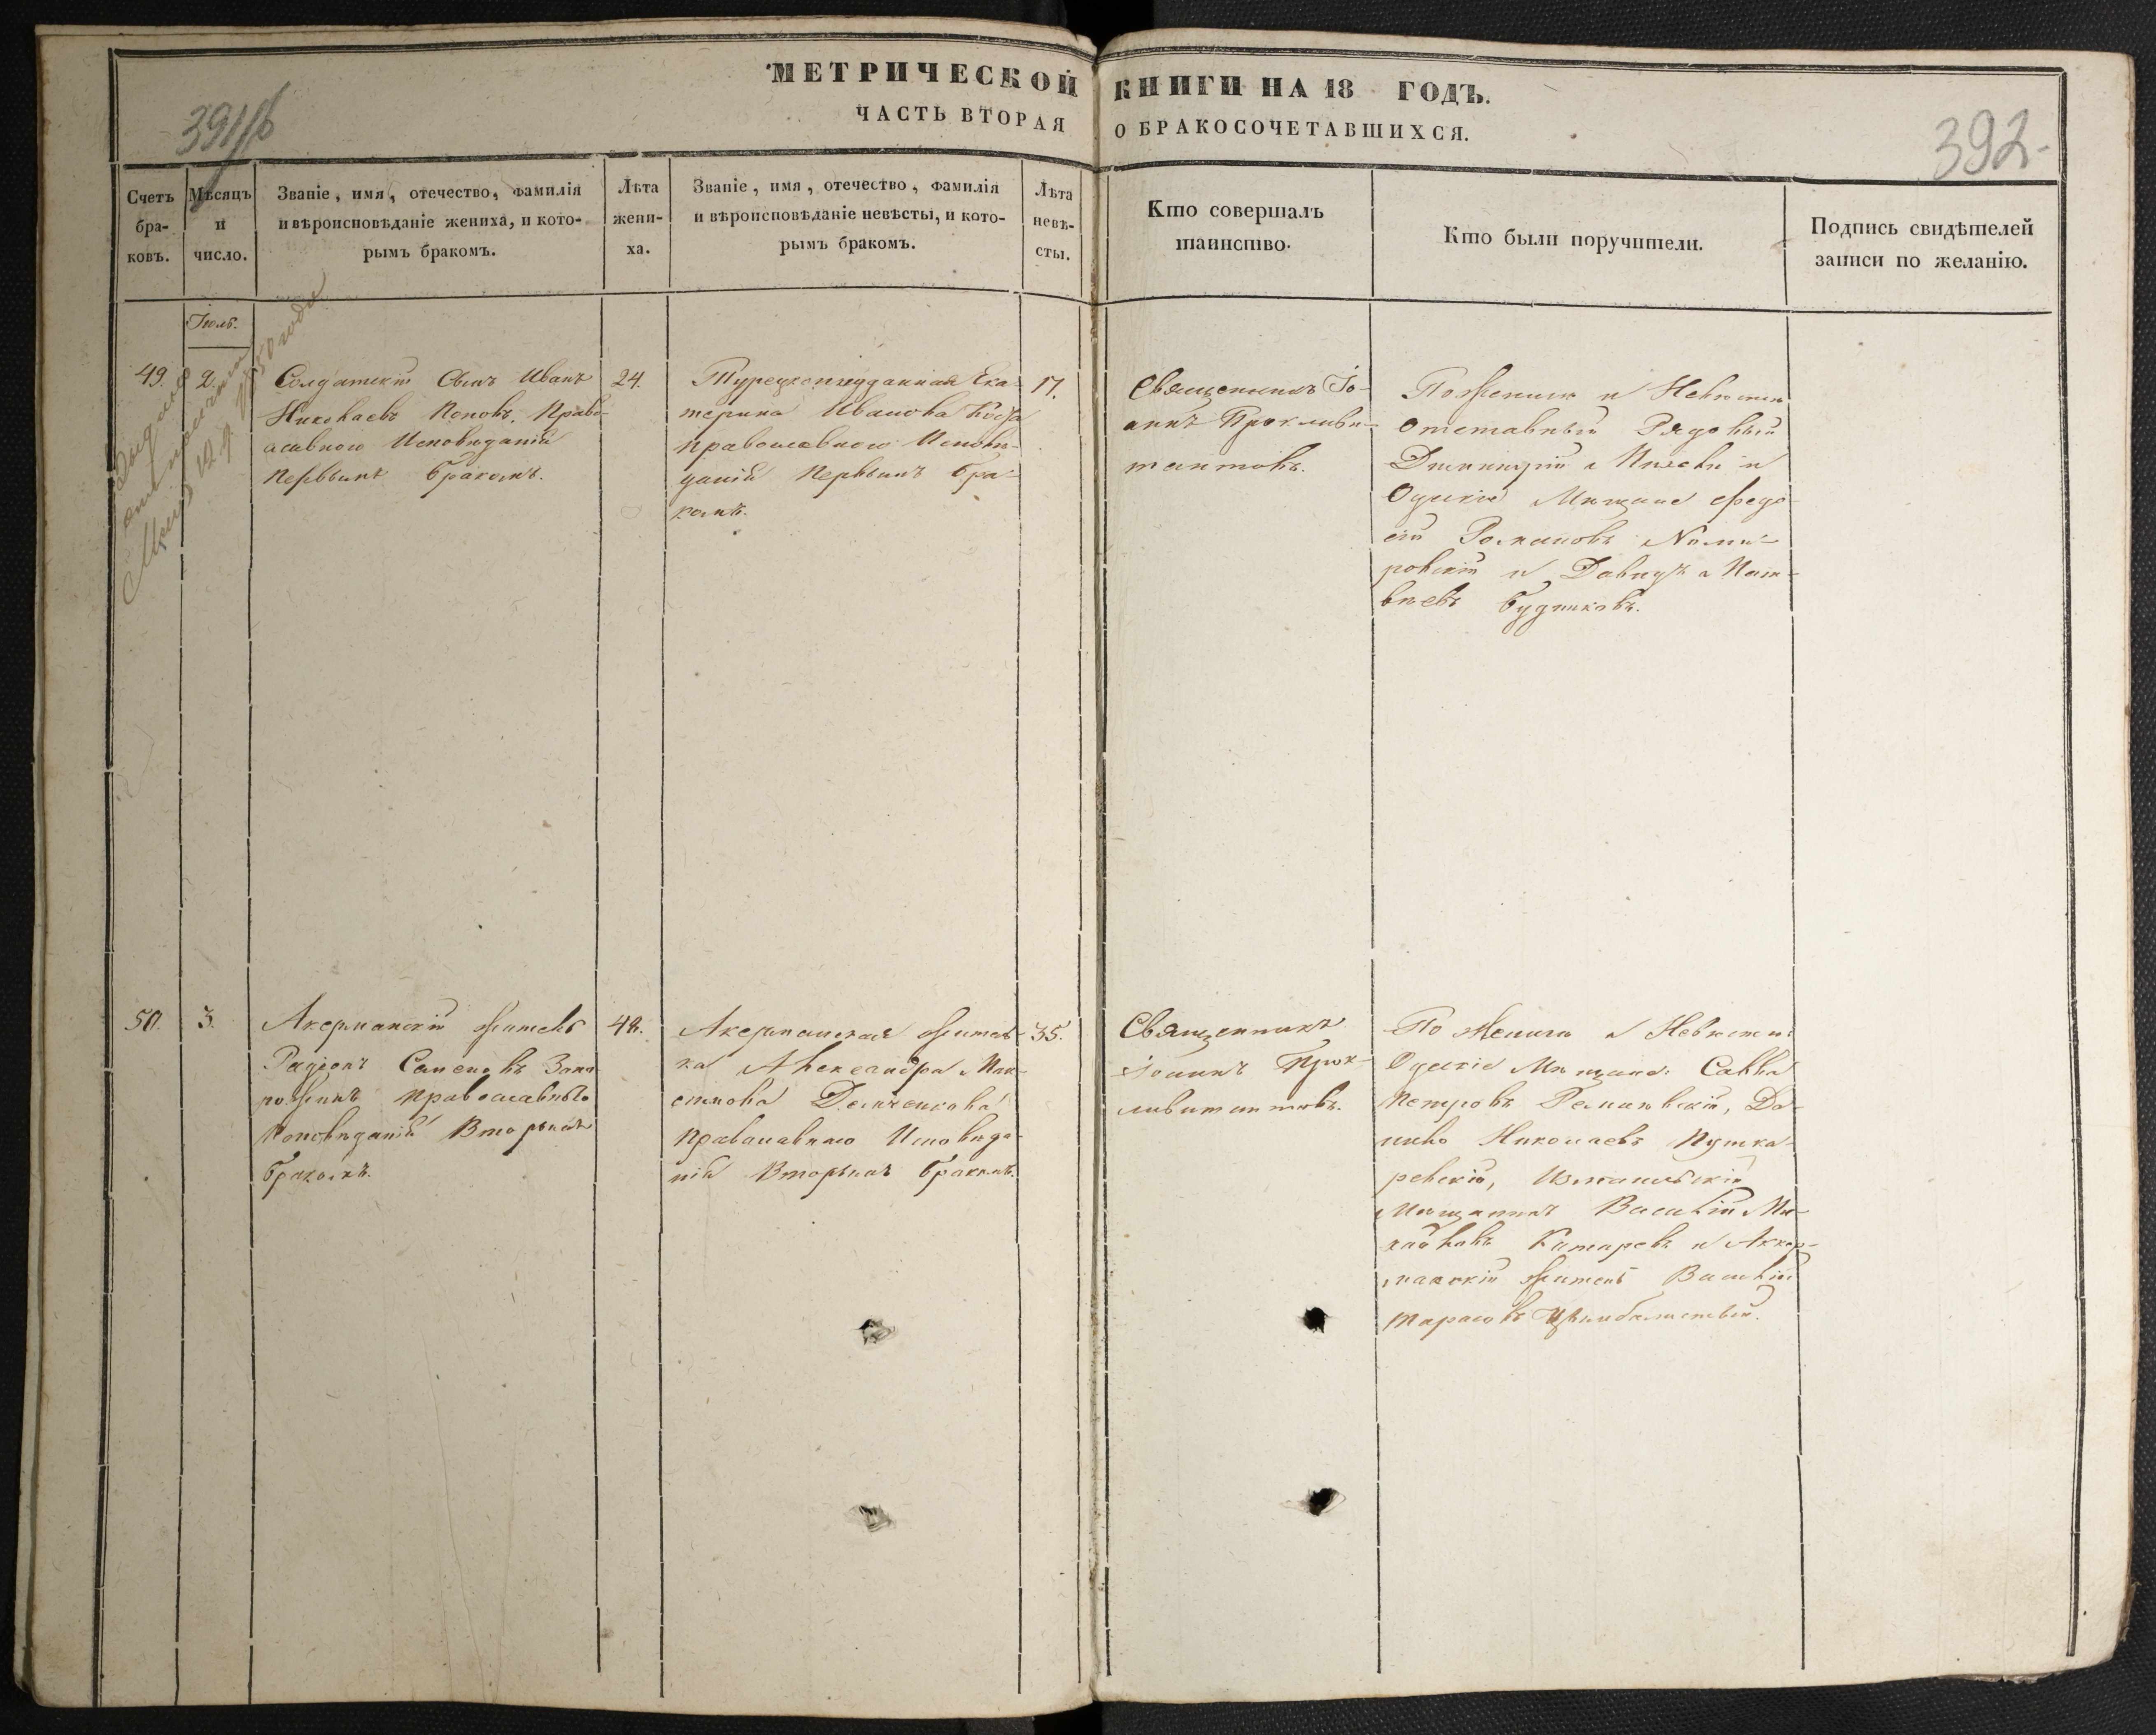 МЕТРИЧЕСКОЙ КНИГИ НА 18 ГОДЪ.
ЧАСТЬ ВТОРАЯ О БРАКОСОЧЕТАВШИХСЯ.
391об
392
Счетъ
бра-
ковъ.
Мѣсяцъ
и
число.
Званіе, имя, отечество, фамилія
и вѣроисповѣданіе жениха, и кото-
рымъ бракомъ.
Лѣта
жени-
ха.
Званіе, имя, отечество, фамилія
и вѣроисповѣданіе невѣсты, и кото-
рымъ бракомъ.
Лѣта
невѣ-
сты.
Кто совершалъ
таинство.
Кто были поручители.
Подпись свидѣтелей
записи по желанію.
Іюль.
49.
2.
Солдатскій Сынъ Иванъ
Николаевъ Поповъ. Право-
славного Исповѣданія
Первымъ бракомъ.
24.
Турецкоподданная Ека-
терина Иванова
православного Исповѣ-
данія Первымъ бра-
комъ.
17.
Священникъ Іо-
аннъ Проклиби-
тантовъ.
По Жениху и Невѣсте
Отставный Рядовый
Димитрій и
Одескіе Мещане Федо-
сій Романовъ
ровскій и Давидъ Мат-
вѣевъ Будниковъ.
50.
3.
Акерманскій житель
Радіонъ Семеновъ Запо
рожинъ православного
Исповѣданія Вторымъ
бракомъ.
48.
Акерманская жител-
ка Александра Мак-
симова Демченкова
Православного Исповѣда-
нія Вторымъ бракомъ.
35.
Священникъ
Іоаннъ Прок-
либитантовъ.
По Жениху и Невѣсте:
Одескіе Мещане: Савва
Петровъ Романовскій, Да-
нило Николаевъ Пушка-
ревскій, Измаильскій
Мещанинъ Василій Ми-
хайловъ Катаревъ и Аккер-
манскій житель Василій
Тарасовъ Цимбалистый.